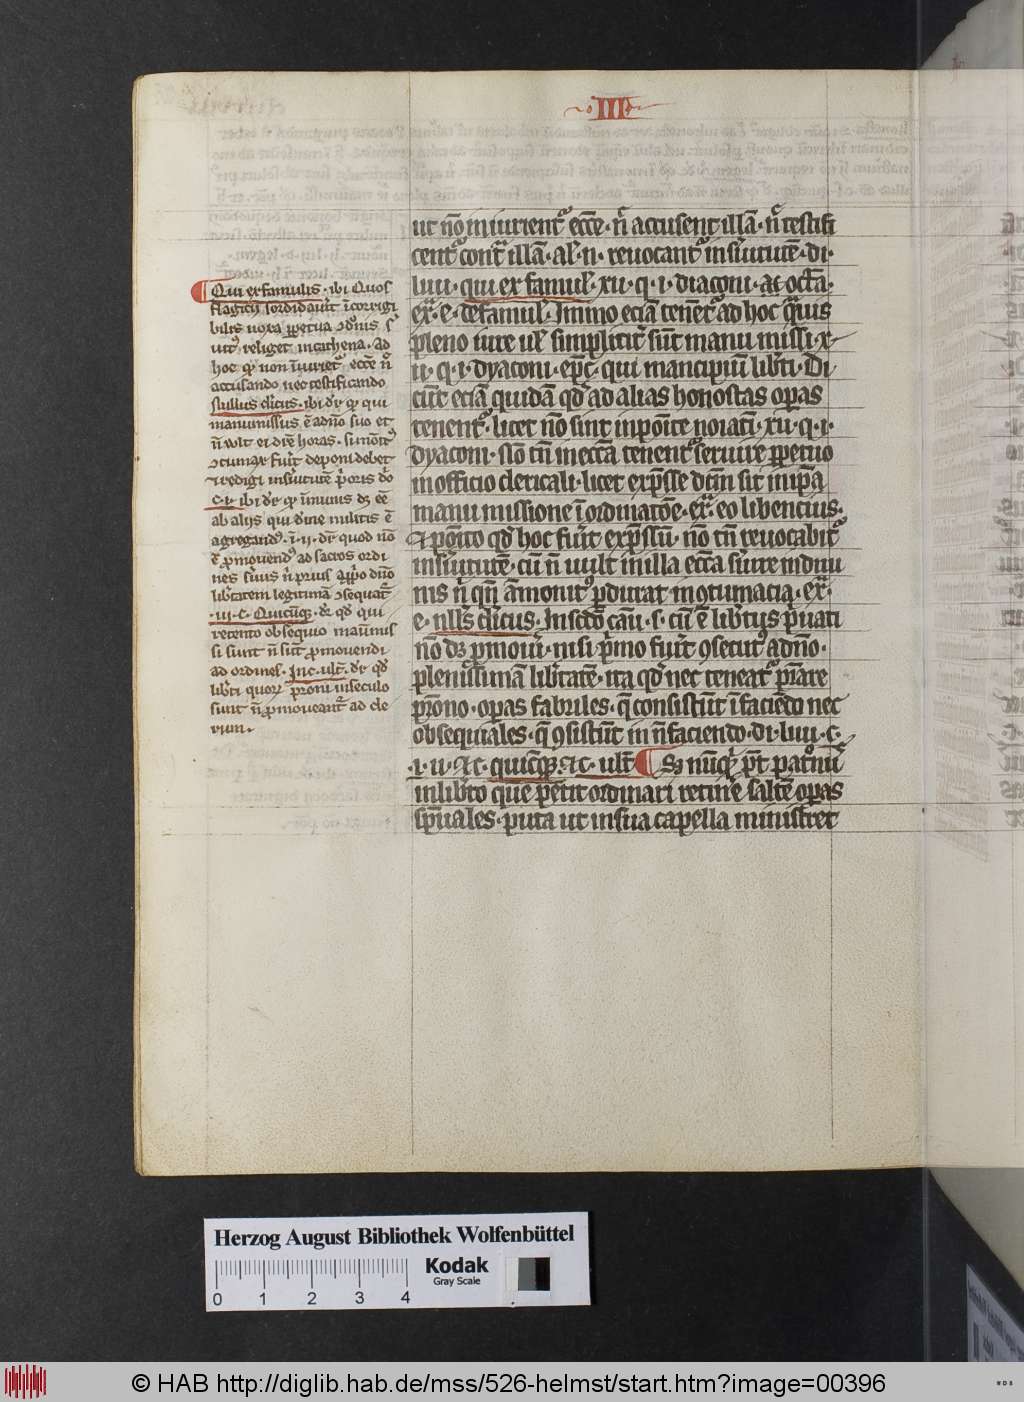 III
ut nō iniurient᷑ ecc̄e · n̄ accusent illā · n̄ testifi
cent᷑ cont̄ illā · al̓ · n̄ · reuocant᷑ in s̓uitutē · di ·
liiii · qui ex famul̓ · xii · q · i · diaconi · ac oct̄a ·
ex̄ · e · de famul̓ · Immo eciā tenet᷑ ad hoc q̄uis
pleno iure ul̓ simplicit̓ sūt manu missi · x
ii · q · i · dyaconi · ep̄c · qui mancipiū lib̓ti · Di
cūt eciā quidā qd̓ ad alias honestas op̄as
tenent᷑ · licet nō sint inpōite noīati · xii · q · i ·
dyaconi · Nō tn̄ in ecc̄a tenent᷑ seruire ꝑpetuo
in officio clericali · licet exp̄sse dc̄m sit in ip̄a
manu missione ī ordinatōe · ex̄ · eo libencius ·
⁊ pōito qd̓ hoc fu̓it exp̄ssū · nō tn̄ reuocabit᷑
in s̓uitutē · cū n̄ uult in illa ecc̄a s̓uire in diui
nis n̄ qn̄ āmonit᷑ ꝑdurat in ꝯtumacia · ex̄ ·
e · nll̓s cl̓icus · In sc̄do cāu · s · cū ē lib̓tus p̓uati
nō dȝ ꝓmoueri · nisi p̓mo fu̓it ꝯsecut᷒ a dn̄o ·
plenissimā lib̓tatē · ita qd̓ nec teneat᷑ p̄stare
pat̓ono · op̄as fabriles · q̄ consistūt ī faciēdo nec
obsequiales · q̄ ꝯsistūt in n̄ faciendo · di · liiii · c ·
· i · ii · ⁊ c · quicūqȝ · ⁊ c · ult̄ ¶ S nūqd̓ pōt patronꝰ
in lib̓to quē ꝑmittit ordinari retin̓e saltē op̄as
sp̄uales · puta ut in sua capella ministret
¶ Qui ex famulis · ibi Quos
flagiciis sordidau̓it ī corrigi
bilis noxa ꝑpetua ꝯdōnis s̓
uit᷑ religet in cathena · ad
hoc qd̓ non īiuriet᷑ ecc̄e n̄
accusando nec testificando
Nullus cl̓icus · ibi dr̄ qd̓ qui
manumissus ē a dn̄o suo et
n̄ wlt ei dic̓e horas · si mōit᷒
ꝯtumax fu̓it deponi debet
⁊ redigi in s̓uitutē p̓oris dn̄i
c · i · ibi dr̄ qd̓ īmunis dȝ eē
ab aliis qui diuīe militie ē
agregand᷒ · i · ii · dr̄ quod nō
ē ꝓmouend᷒ ad sacros ordi
nes s̓uus n̄ prius a ꝓp̓o dn̄o
lib̓tatem legitimā ꝯsequat᷑
· iii · c · Quicūqȝ · dr̄ qd̓ qui
retento obsequio manūmis
si sunt n̄ sūt ꝓmouendi
ad ordines · In c · ult̄ · dr̄ qd̓
lib̓ti quorū pat̓oni in seculo
sunt n̄ ꝓmoueant᷑ ad cle
rum ·
Herzog August Bibliothek Wolfenbüttel
Kodak
Gray Scale
0 1 2 3 4
© HAB http://diglib.hab.de/mss/526-helmst/start.htm?image=00396